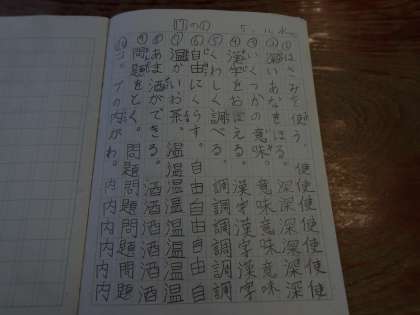 17の①
①を使う。使使使使使使使
②深いあなをほる。深深深深深深
③いくつかの意味。意味意味意味
④漢字をおぼえる。漢字漢字漢字
⑤くわしく調べる。調調調調調調
⑥自由にくらす。自由自由自由自
⑦温かいお茶。温温温温温温温温
⑧あま酒ができる。酒酒酒酒酒酒
⑨問題をとく。問題問題問題問題
⑩コップの内がわ。内内内内内内